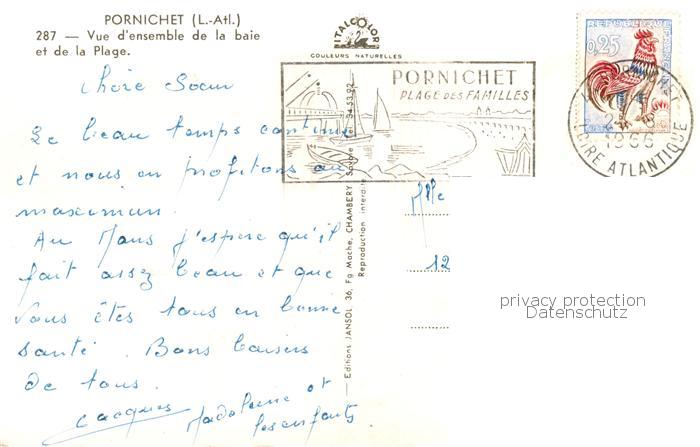 PORNICHET (L.-Atl.)
287 — Vue d'ensemble de la baie
et de la Plage.
ITALCOLOR
COULEURS NATURELLES
PORNICHET
PLAGE DES FAMILLES
REPUBLIQUE FRANCAISE
0,25
1966
LOIRE ATLANTIQUE
Chère Soeur
Le beau temps continue
et nous en profitons au
maximum.
Au Mans j'espère qu'il
fait assez beau et que
vous êtes tous en bonne
santé. Bons baisers
de tous.
Jacques Madeleine et
les enfants
Editions JANSOL 36, Fg Mache, CHAMBERY Savoie Tél. 34.53.92
Reproduction interdite
Mlle
12
privacy protection
Datenschutz